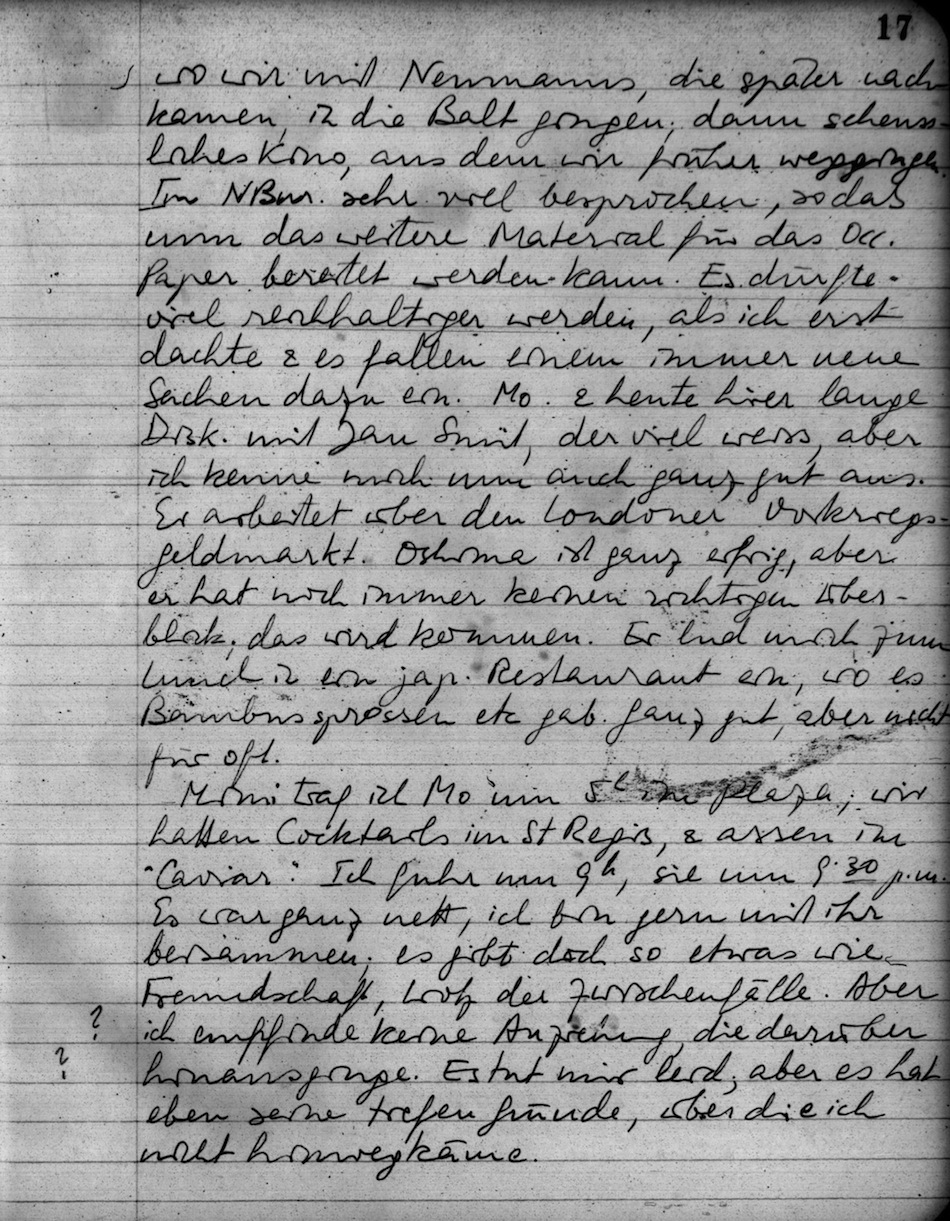 17
wo wir mit Neumanns, die später nach
kamen, in die Balt gingen; dann scheuss-
liches Kino, aus dem wir früher weggingen.
Im NBur. sehr viel besprochen, sodas
nun das weitere Material für das Occ.
Paper bereitet werden kann. Es dürfte
viel reichhaltiger werden, als ich erst
dachte & es fallen einem immer neue
Sachen dazu ein. Mo. & heute hier lange
Disk. mit Jan Smit, der viel weiss, aber
ich kenne mich nun auch ganz gut aus.
Er arbeitet über den Londoner Vorkriegs-
geldmarkt. Oshima ist ganz eifrig, aber
er hat noch immer keinen richtigen Über-
blick; das wird kommen. Er lud mich zum
Lunch in ein jap. Restaurant ein, wo es
Bambussprossen etc gab. Ganz gut, aber nicht
für oft.
Mimi traf ich Mo um 5h im Plaza; wir
hatten Cocktails im St Regis, & assen im
"Caviar". Ich fuhr um 9h, sie um 9.30 p.m.
Es war ganz nett, ich bin gern mit ihr
beisammen; es gibt doch so etwas wie
Freundschaft, trotz der Zwischenfälle. Aber
? ich empfinde keine Anziehung, die darüber
? hinausginge. Es tut mir leid; aber es hat
eben seine tiefen Gründe, über die ich
nicht hinwegkäme.